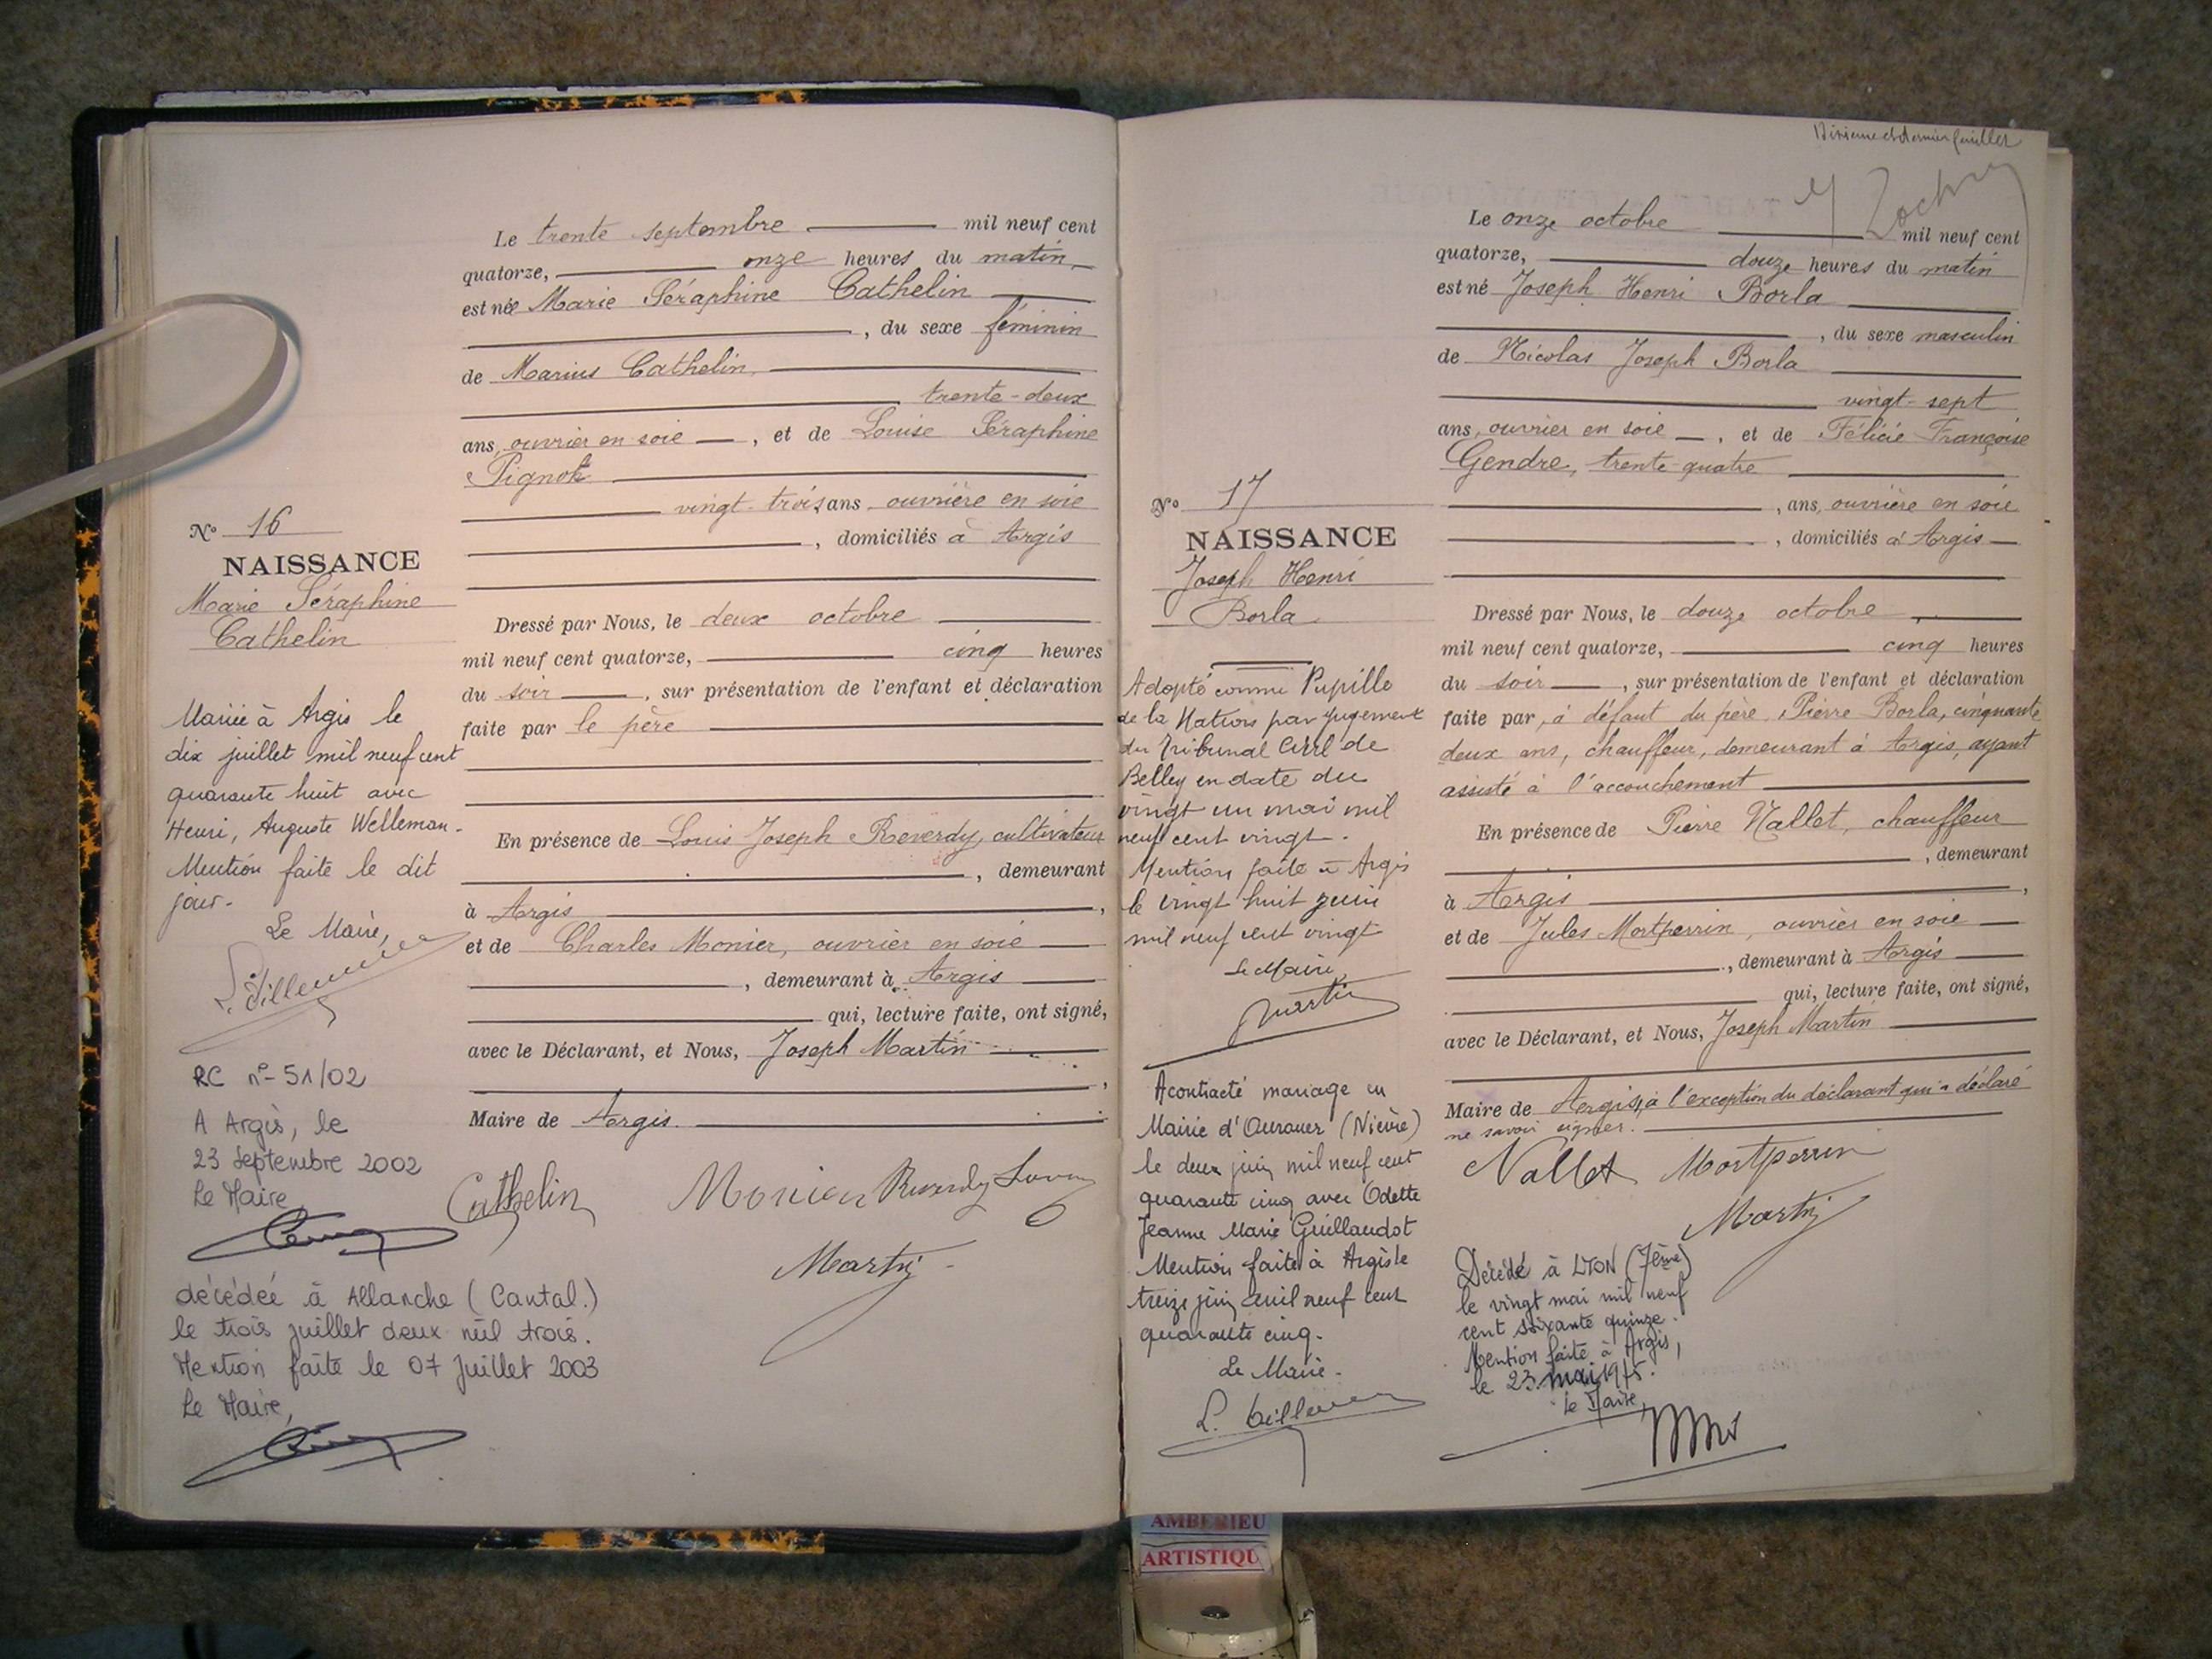 Le trente septembre mil neuf cent
quatorze, onze heures du matin
est née Marie Séraphine Cathelin
, du sexe féminin
de Marius Cathelin
trente-deux
ans, ouvrier en soie, et de Louise Séraphine
Pignol
vingt-trois ans, ouvrière en soie
, domiciliés à Argis
N° 16
NAISSANCE
Marie Séraphine
Cathelin
Dressé par Nous, le deux octobre
mil neuf cent quatorze, cinq heures
du soir, sur présentation de l'enfant et déclaration
faite par le père
En présence de Louis Joseph Reverdy, cultivateur
, demeurant
à Argis,
et de Charles Monier, ouvrier en soie
, demeurant à Argis
qui, lecture faite, ont signé,
avec le Déclarant, et Nous, Joseph Martin
,
Maire de Argis.
Cathelin Monier Reverdy Louis
Martin
Mariée à Argis le
dix juillet mil neuf cent
quarante huit avec
Henri, Auguste Welleman.
Mention faite le dit
jour.
Le Maire,
RC n° 51/02
A Argis, le
23 Septembre 2002
Le Maire
décédée à Allanche (Cantal.)
le trois juillet deux mil trois.
Mention faite le 07 Juillet 2003
Le Maire,
et dernier feuillet
Le onze octobre mil neuf cent
quatorze, douze heures du matin
est né Joseph Henri Borla
, du sexe masculin
de Nicolas Joseph Borla
vingt-sept
ans, ouvrier en soie, et de Félicie Françoise
Gendre, trente-quatre
, ans, ouvrière en soie
, domiciliés à Argis
N° 17
NAISSANCE
Joseph Henri
Borla
Dressé par Nous, le douze octobre,
mil neuf cent quatorze, cinq heures
du soir, sur présentation de l'enfant et déclaration
faite par, à défaut du père, Pierre Borla, cinquante
deux ans, chauffeur, demeurant à Argis, ayant
assisté à l'accouchement
En présence de Pierre Nallet, chauffeur
, demeurant
à Argis,
et de Jules Mortperrin, ouvrier en soie
, demeurant à Argis
qui, lecture faite, ont signé,
avec le Déclarant, et Nous, Joseph Martin
Maire de Argis, à l'exception du déclarant qui a déclaré
ne savoir signer.
Nallet Mortperrin
Martin
Adopté comme Pupille
de la Nation par jugement
du Tribunal Civil de
Belley en date du
vingt un mai mil
neuf cent vingt.
Mention faite à Argis
le vingt huit juin
mil neuf cent vingt
Le Maire,
Martin
A contracté mariage en
Mairie d'Ourouer (Nièvre)
le deux juin mil neuf cent
quarante cinq avec Odette
Jeanne Marie Guillaudot
Mention faite à Argis le
treize juin mil neuf cent
quarante cinq.
Le Maire.
Décédé à LYON (7ème)
le vingt mai mil neuf
cent soixante quinze.
Mention faite à Argis,
le 23 mai 1975.
Le Maire,
AMBERIEU
ARTISTIQU